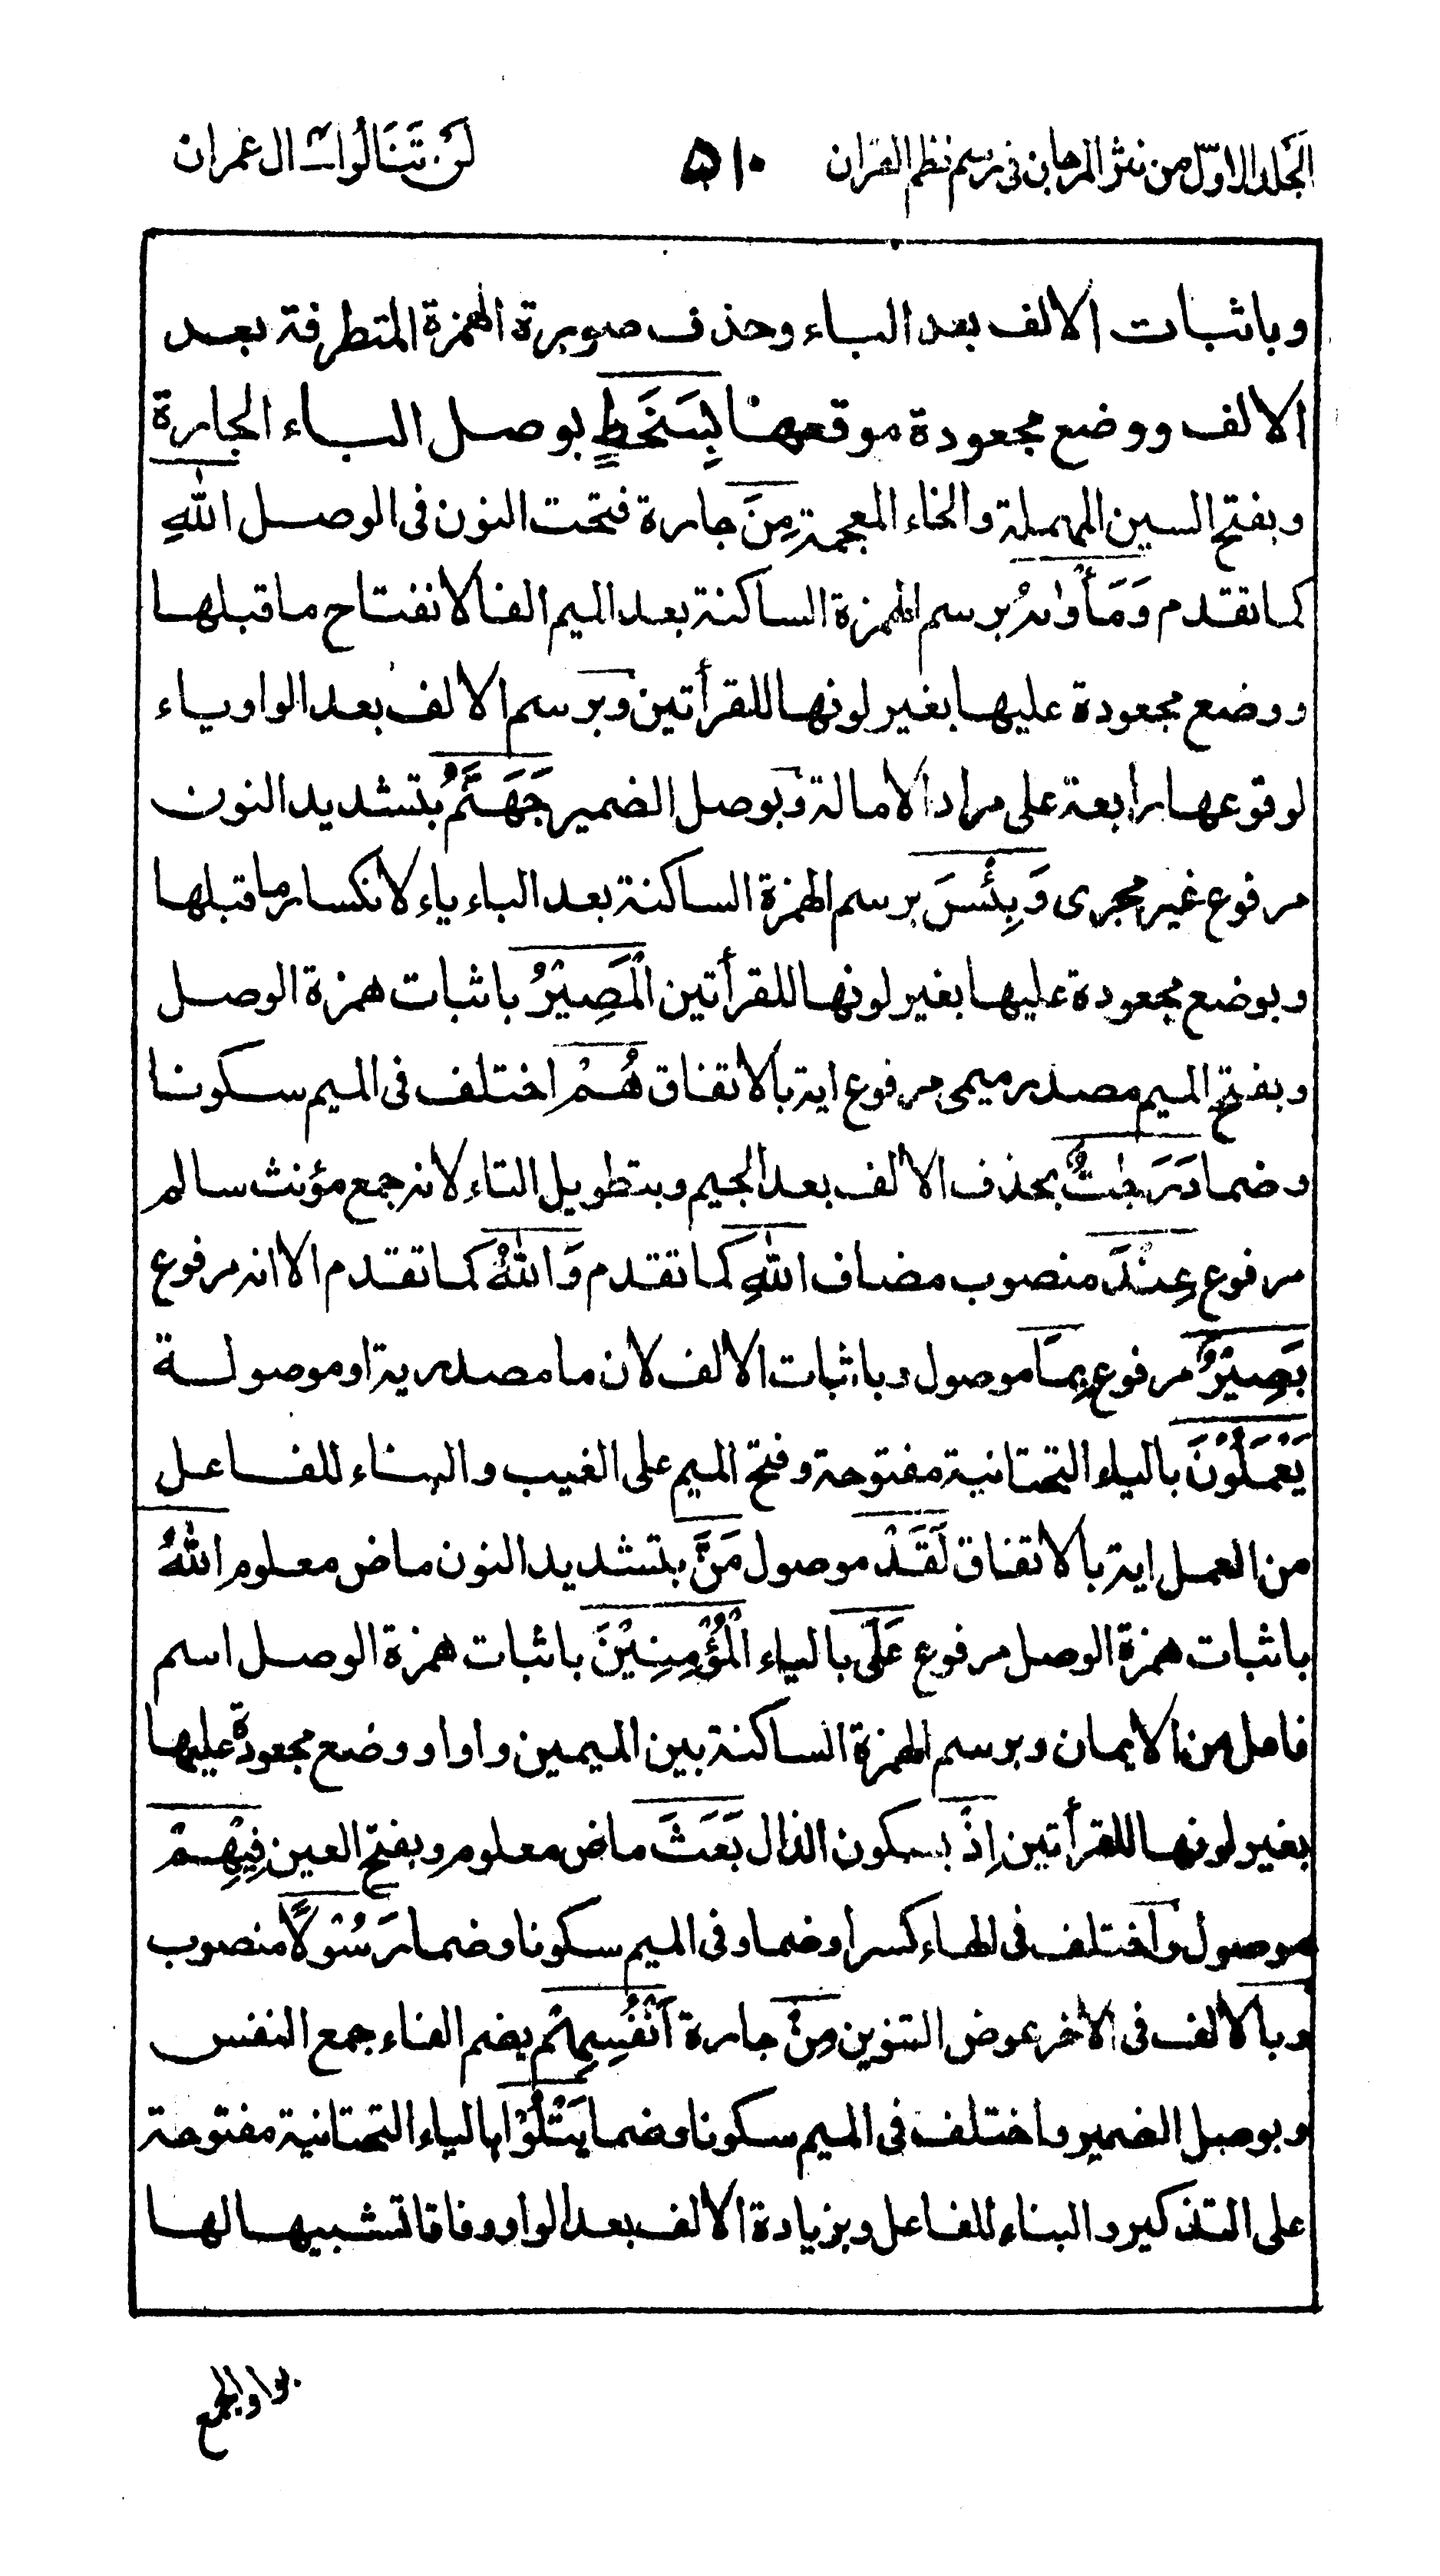 الجلد الاول من نثر المرجان في رسم نظم القران ٥١٠ لَنْ تَنَالُوا ال عمران
وباثبات الالف بعد الباء وحذف صورة الهمزة المتطرفة بعد
الالف ووضع مجعودة موقعها بِسَخَطٍ بوصل الباء الجارة
وبفتح السين المهملة والخاء المعجمة مِنَ جارة فتحت النون فى الوصل اللهِ
كما تقدم وَمَأْوٰىهُ برسم الهمزة الساكنة بعد الميم الفا لانفتاح ما قبلها
ووضع مجعودة عليها بغير لونها للقرأتين وبرسم الالف بعد الواو ياء
لوقوعها رابعة على مراد الامالة وبوصل الضمير جَهَنَّمُ بتشديد النون
مرفوع غير مجرى وَبِئْسَ برسم الهمزة الساكنة بعد الباء ياء لانكسار ما قبلها
وبوضع مجعودة عليها بغير لونها للقرأتين الْمَصِيْرُ باثبات همزة الوصل
وبفتح الميم مصدر ميمى مرفوع اية بالاتفاق هُمْ اختلف فى الميم سكونا
وضما دَرَجٰتٌ بحذف الالف بعد الجيم وبتطويل التاء لانه جمع مؤنث سالم
مرفوع عِنْدَ منصوب مضاف اللهِ كما تقدم وَاللهُ كما تقدم الا انه مرفوع
بَصِيْرٌ مرفوع بِمَا موصول وباثبات الالف لان ما مصدرية او موصولة
يَعْمَلُوْنَ بالياء التحتانية مفتوحة وفتح الميم على الغيب والبناء للفاعل
من العمل اية بالاتفاق لَقَدْ موصول مَنَّ بتشديد النون ماض معلوم اللهُ
باثبات همزة الوصل مرفوع عَلَى بالياء الْمُؤْمِنِيْنَ باثبات همزة الوصل اسم
فاعل من الايمان وبرسم الهمزة الساكنة بين الميمين واوا ووضع مجعودة عليها
بغير لونها للقرأتين اِذْ بسكون الذال بَعَثَ ماض معلوم وبفتح العين فِيْهِمْ
موصول واختلف فى الهاء كسرا وضما وفى الميم سكونا وضما رَسُوْلًا منصوب
وبالالف فى الاخر عوض التنوين مِنْ جارة اَنْفُسِهِمْ بضم الفاء جمع النفس
وبوصل الضمير واختلف فى الميم سكونا وضما يَتْلُوْا بالياء التحتانية مفتوحة
على التذكير والبناء للفاعل وبزيادة الالف بعد الواو وفاقا تشبيها لها
بواو الجمع